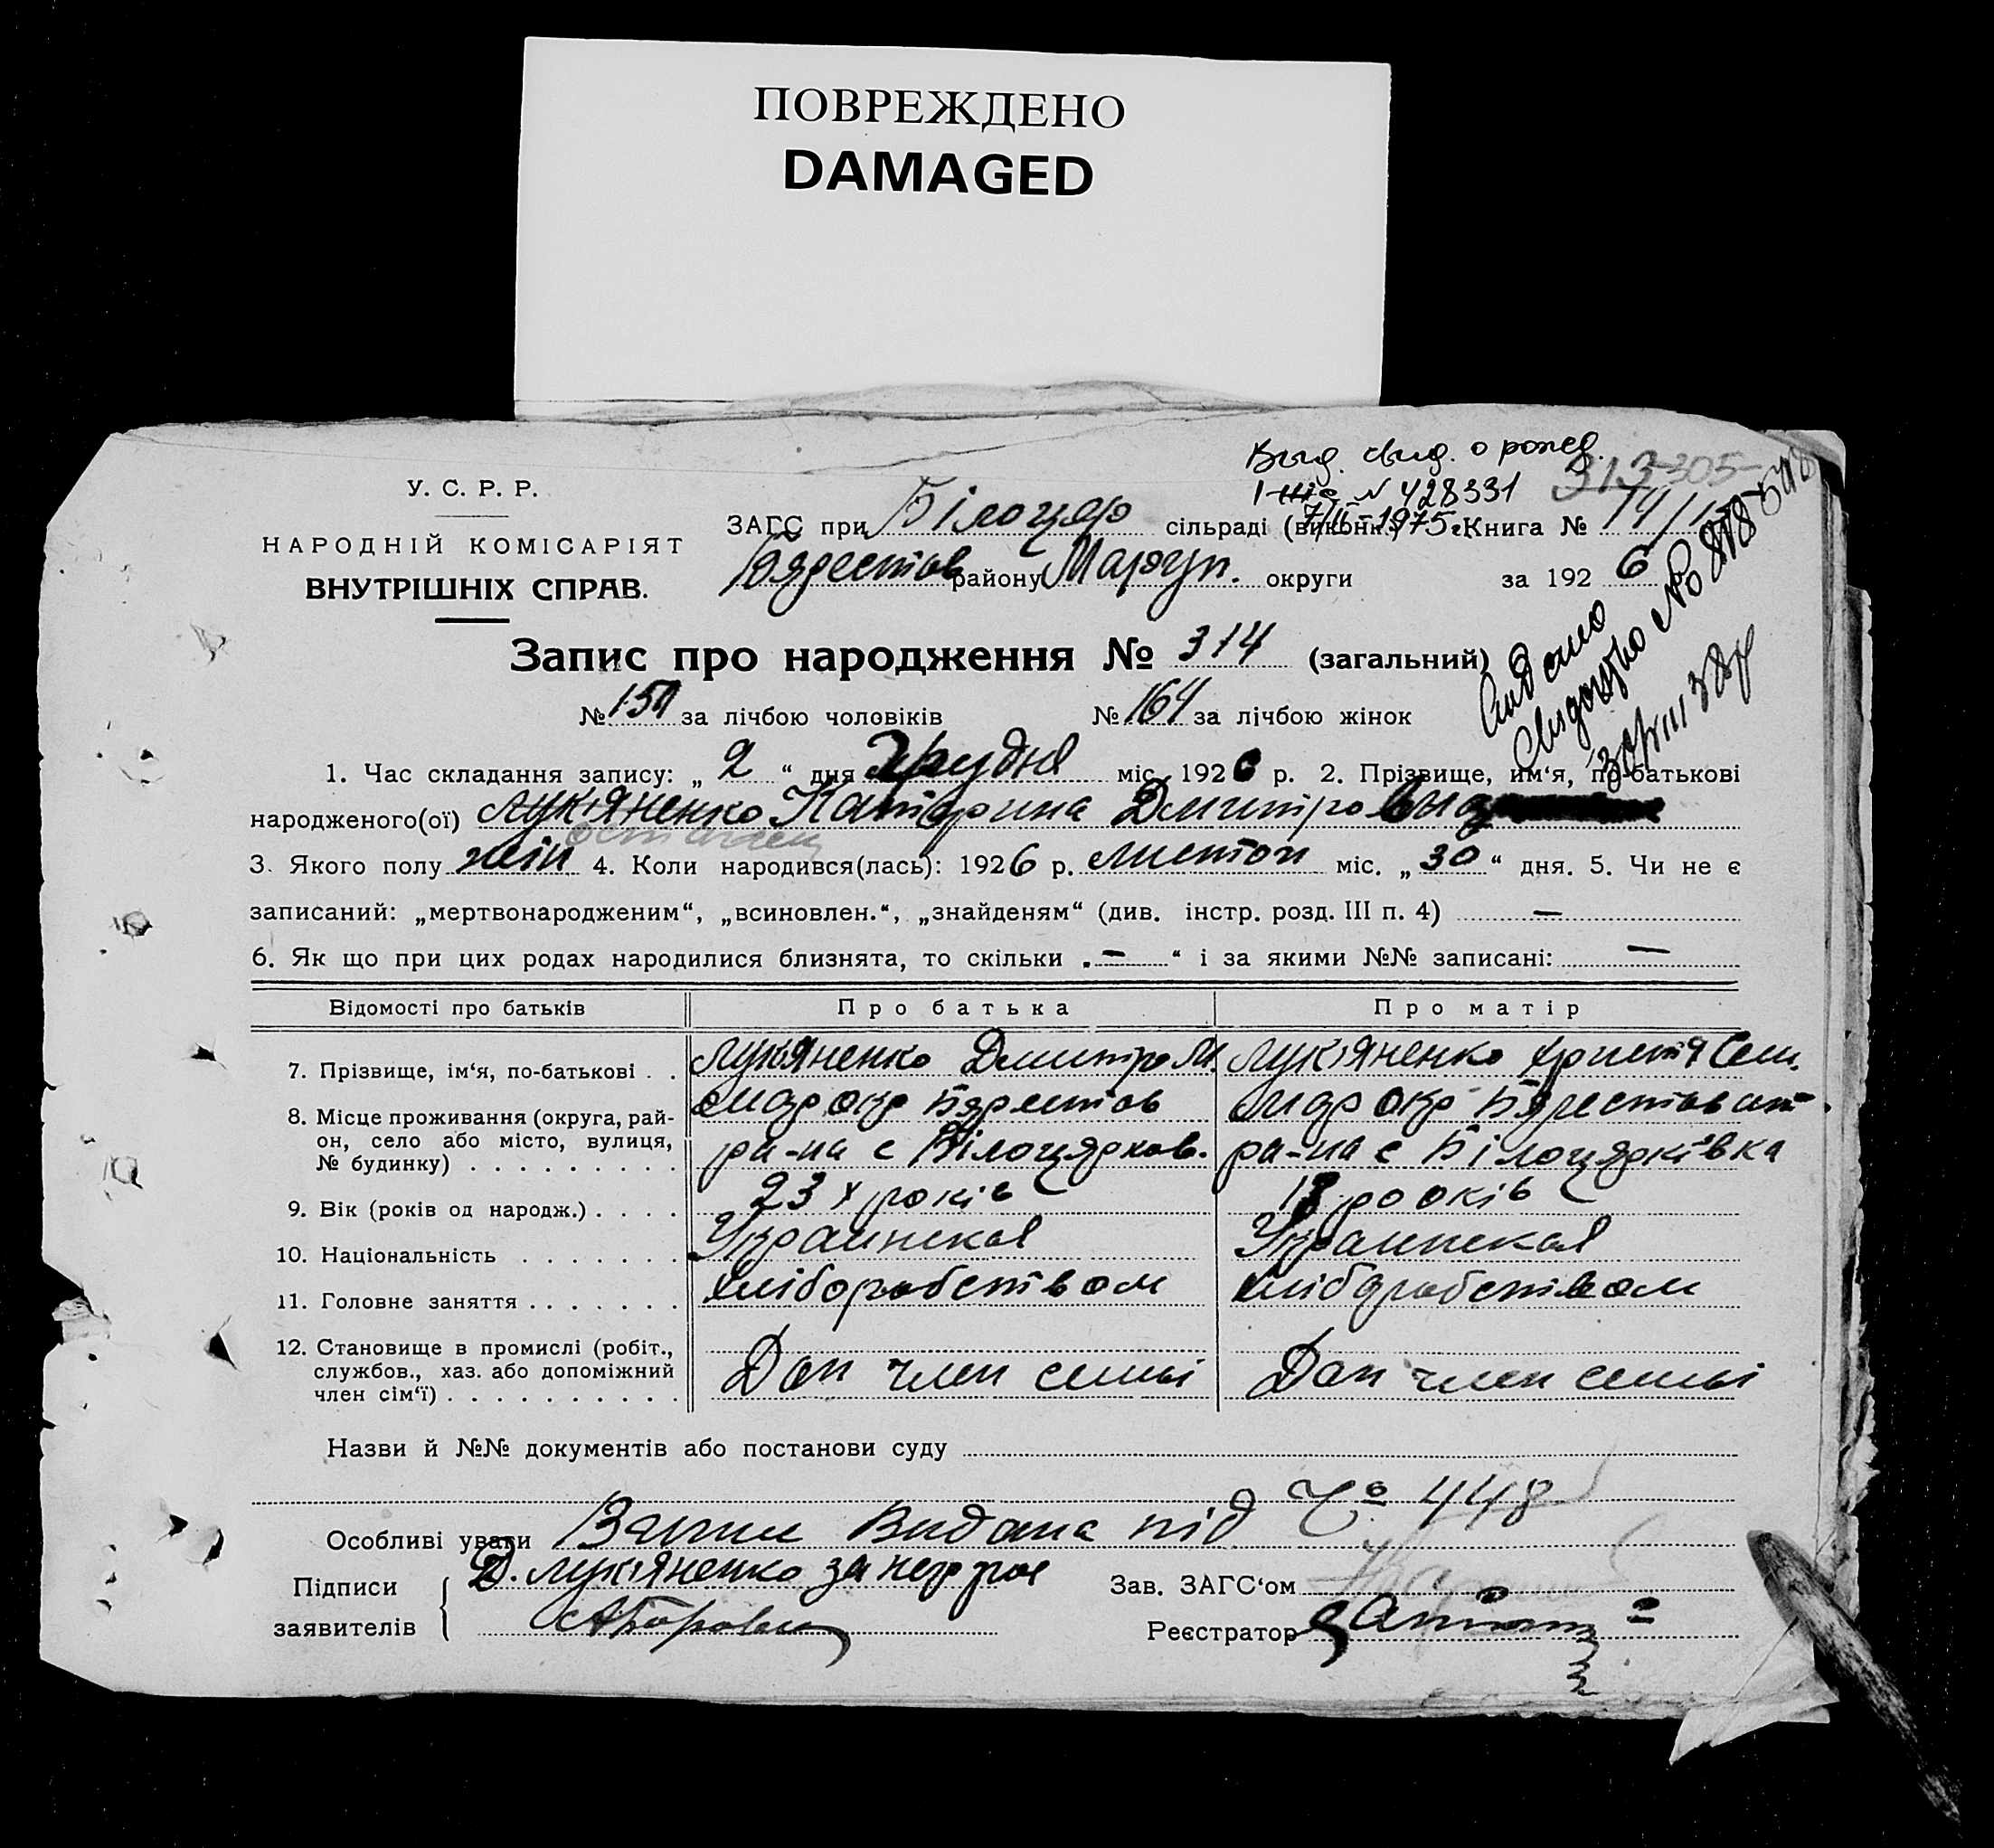 ПОВРЕЖДЕНО
DAMAGED
Выд. свид. о рожд.
N 428331
313 305
У. С. Р. Р.
НАРОДНІЙ КОМІСАРІЯТ
ВНУТРІШНІХ СПРАВ.
ЗАГС при Білоцер сільраді (викон.) 1975 г. Книга № 14/13
району Маріуп. округи за 1926
Запис про народження № 314 (загальний)
№ 150 за лічбою чоловіків № 164 за лічбою жінок
Видано
1. Час складання запису: „ 2 “ дня Грудня міс. 1926 р. 2. Прізвище, им‘я, по-батькові
народженого(ої) Лукіяненко Катерина Дмитровна
3. Якого полу жін 4. Коли народився(лась): 1926 р. листоп міс. „ 30 “ дня. 5. Чи не є
записаний: „мертвонародженим“, „всиновлен.“, „знайденям“ (див. інстр. розд. III п. 4) —
6. Як що при цих родах народилися близнята, то скільки „ — “ і за якими №№ записані: —
Відомості про батьків Про батька Про матір
7. Прізвище, ім‘я, по-батькові . . Лукіяненко Дмитро М. Лукіяненко Христя Сем.
8. Місце проживання (округа, рай-
он, село або місто, вулиця,
№ будинку) . . . . . . . . . . ра-на с Білоцерков. ра-на с Білоцерківка
9. Вік (років од народж.) . . . . 23 х років 18 рооків
10. Національність . . . . . . . Украинская Украинская
11. Головне заняття . . . . . . . хліборобством хліборобством
12. Становище в промислі (робіт.,
службов., хаз. або допоміжний
член сім‘ї) . . . . . . . . . . Доп член семьі Доп член семьі
Назви й №№ документів або постанови суду
Особливі уваги Видана під № 448
Підписи Д. Лукіяненко за негр Зав. ЗАГС‘ом
заявителів Реєстратор